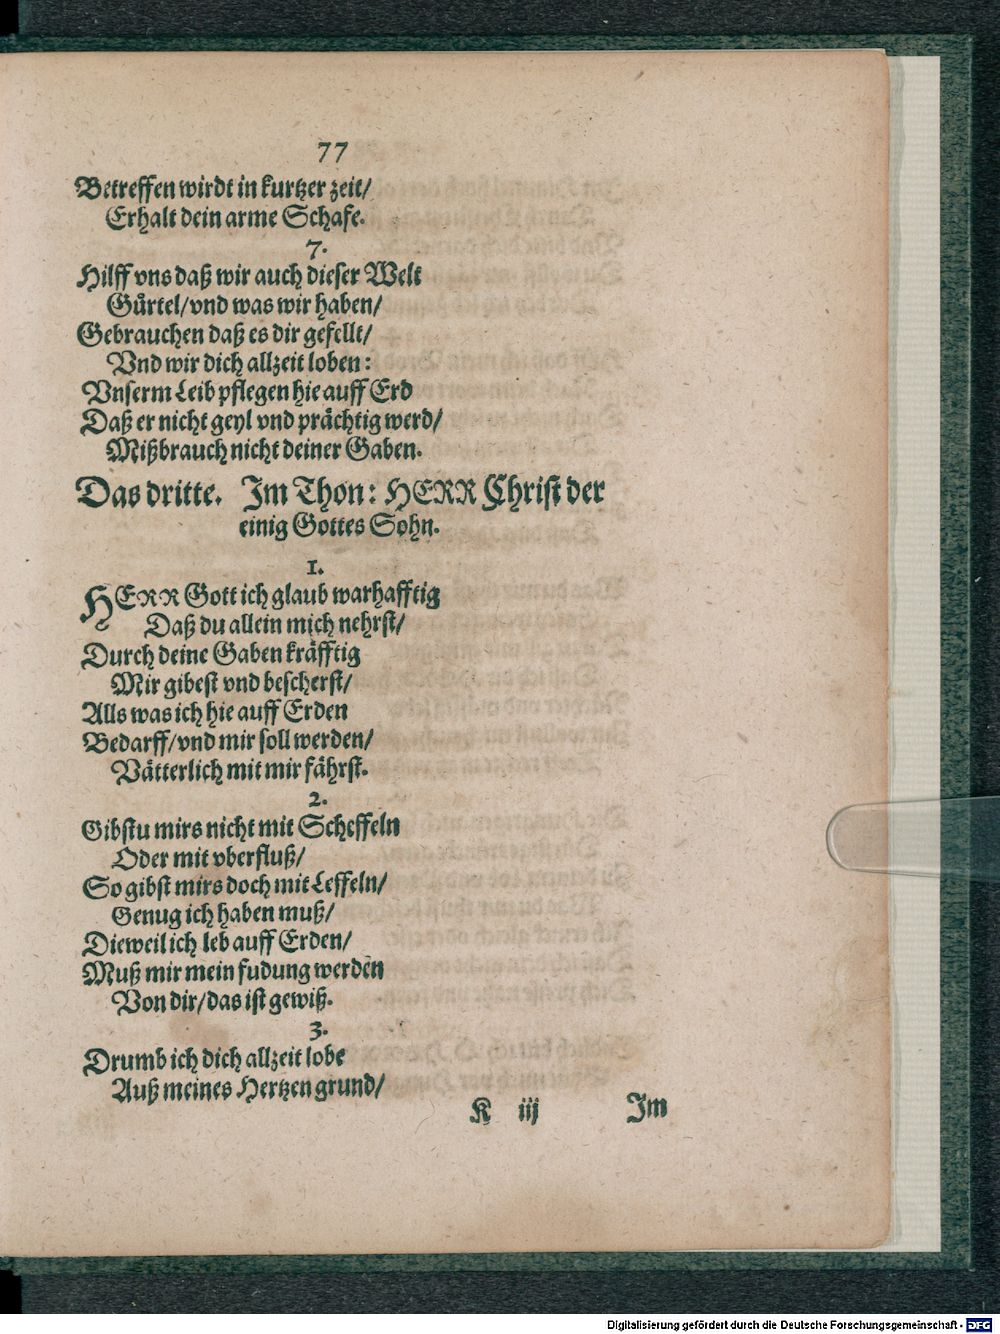 77
Betreffen wirdt in kurtzer zeit/
Erhalt dein arme Schafe.
7.
Hilff vns daß wir auch dieser Welt
Gürtel/vnd was wir haben/
Gebrauchen daß es dir gefellt/
Vnd wir dich allzeit loben:
Vnserm Leib pflegen hie auff Erd
Daß er nicht geyl vnd prächtig werd/
Mißbrauch nicht deiner Gaben.
Das dritte. Im Thon: HERR Christ der
einig Gottes Sohn.
1.
HERR Gott ich glaub warhafftig
Daß du allein mich nehrst/
Durch deine Gaben kräfftig
Mir gibest vnd bescherst/
Alls was ich hie auff Erden
Bedarff/vnd mir soll werden/
Vätterlich mit mir fährst.
2.
Gibstu mirs nicht mit Scheffeln
Oder mit vberfluß/
So gibst mirs doch mit Leffeln/
Genug ich haben muß/
Dieweil ich leb auff Erden/
Muß mir mein fudung werden
Von dir/das ist gewiß.
3.
Drumb ich dich allzeit lobe
Auß meines Hertzen grund/
K iij Im
Digitalisierung gefördert durch die Deutsche Forschungsgemeinschaft - DFG